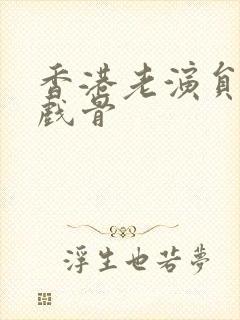 香港老演員
戲骨
浮生也若夢